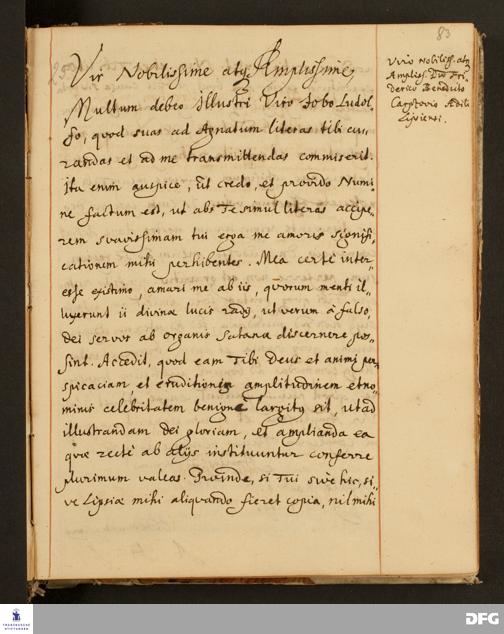 83
Vir Nobilissime atq. Amplissime,
Multum debeo Illustri Viro Jobo Ludol-
fo, quod suas ad Agnatum literas tibi cu-
randas et ad me transmittendas commiserit.
Ita enim auspice, ut credo, et provido Numi-
ne factum est, ut abs Te simul literas accipe-
rem suavissimam tui erga me amoris signifi-
cationem mihi perhibentes. Mea certè inter-
esse existimo, amari me ab iis, quorum menti il-
luxerunt ii divinae lucis radij, ut verum à falso,
dei servos ab organis Satanae discernere pos-
sint. Accedit, quod eam Tibi Deus et animi per-
spicaciam et eruditionis amplitudinem et no-
minis celebritatem benignè largitus sit, ut ad
illustrandam dei gloriam, et amplianda ea
quae rectè ab alijs instituuntur conferre
plurimum valeas. Proinde, si Tui sive hic, si-
ve Lipsiae mihi aliquando fieret copia, nil mihi
Viro Nobiliss. atq.
Ampliss. Dno Fri-
derico Benedicto
Carpzovio Aedili
Lipsiensi.
FRANCKESCHE
STIFTUNGEN
DFG